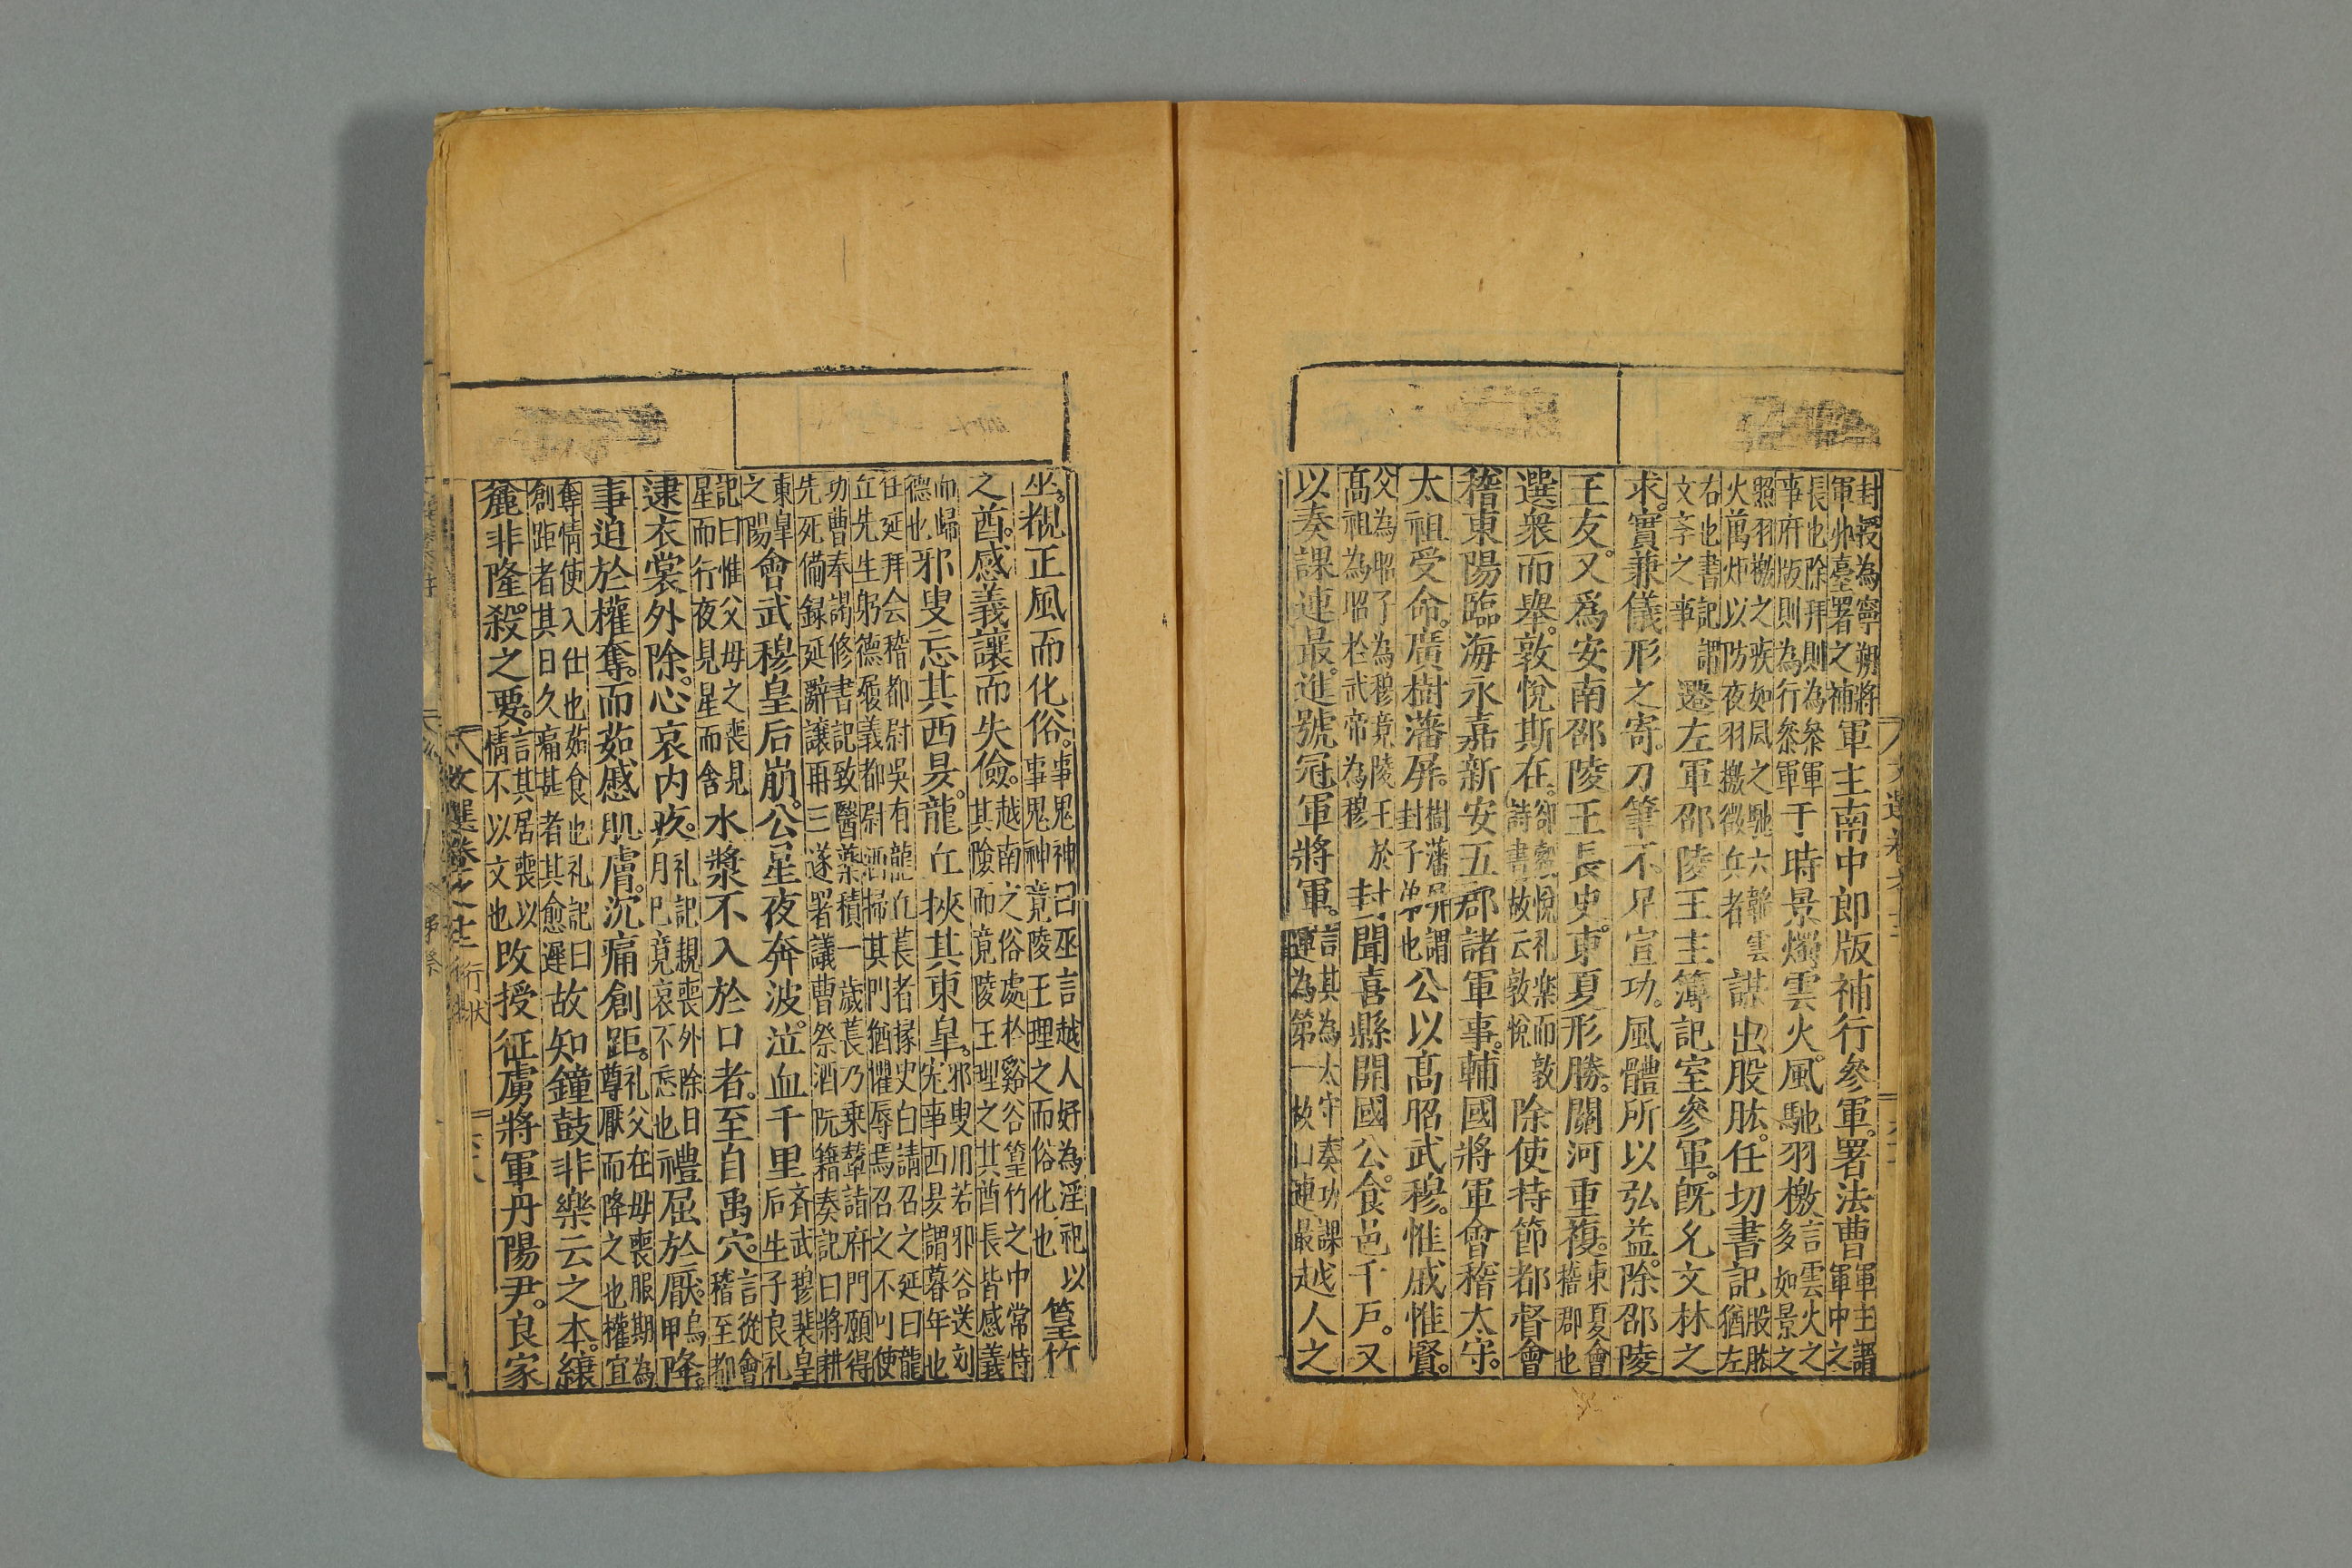 封授為寧朔將軍主南中郎版補行參軍署法曹軍主謂
軍帥臺署之補軍中之
長也除拜則為參軍于時景燭雲火風馳羽檄言雲火之
事府版則為行參軍多如景之
照羽檄之疾如風之馳六韜雲謀出股肱任切書記股肱
火萬炬以防夜羽檄徵兵者猶左
右也書記謂遷左軍邵陵王主簿記室參軍既允文林之
文字之事
求實兼儀形之寄刀筆不足宣功風體所以弘益除邵陵
王友又爲安南邵陵王長史東夏形勝關河重複東夏會
稽郡也
選衆而舉敦悅斯在郤縠悅礼楽而敦除使持節都督會
詩書故云敦悅
稽東陽臨海永嘉新安五郡諸軍事輔國將軍會稽太守
太祖受命廣樹藩屏樹藩屏謂公以高昭武穆惟戚惟賢
封子弟也
父為昭子為穆竟陵王於封聞喜縣開國公食邑千戶又
高祖為昭於武帝為穆
以奏課連最進號冠軍將軍言其為太守奏功課越人之
連為第一故曰連最
巫覩正風而化俗事鬼神曰巫言越人好為淫祀以篁竹
事鬼神竟陵王理之而俗化也
之酋感義讓而失儉越南之俗處於谿谷篁竹之中常恃
其險而竟陵王理之其酋長皆感義
而歸邪叟忘其西昃龍丘挾其東皐邪叟用若邪谷送刘
德也宠事西昃謂暮年也
任延拜会稽都尉吳有龍丘萇者掾史白請召之延曰龍
丘先生躬德履義都尉洒掃其門猶懼辱焉召之不可使
功曹奉謁修書記致醫藥積一歲萇乃乗輦詣府門願得
先死備録延辭讓再三遂署議曹祭酒阮籍奏記曰將耕
東皐會武穆皇后崩公星夜奔波泣血千里斉武穆裴皇
之陽后生子良礼
記曰惟父母之喪見水漿不入於口者至自禹穴言從會
星而行夜見星而舍稽至都
逮衣裳外除心哀内疚礼記親喪外除日禮屈於厭烏甲降
月已竟哀不忘也
事迫於權奪而茹慼肌膚沉痛創距礼父在毋喪服期為
尊厭而降之也權宜
奪情使入仕也茹食也礼記曰故知鐘鼓非樂云之本縗
創距者其日久痛甚者其愈遲
麄非隆殺之要言其居喪以改授征虜將軍丹陽尹良家
情不以文也
文選卷之十二行狀
六八